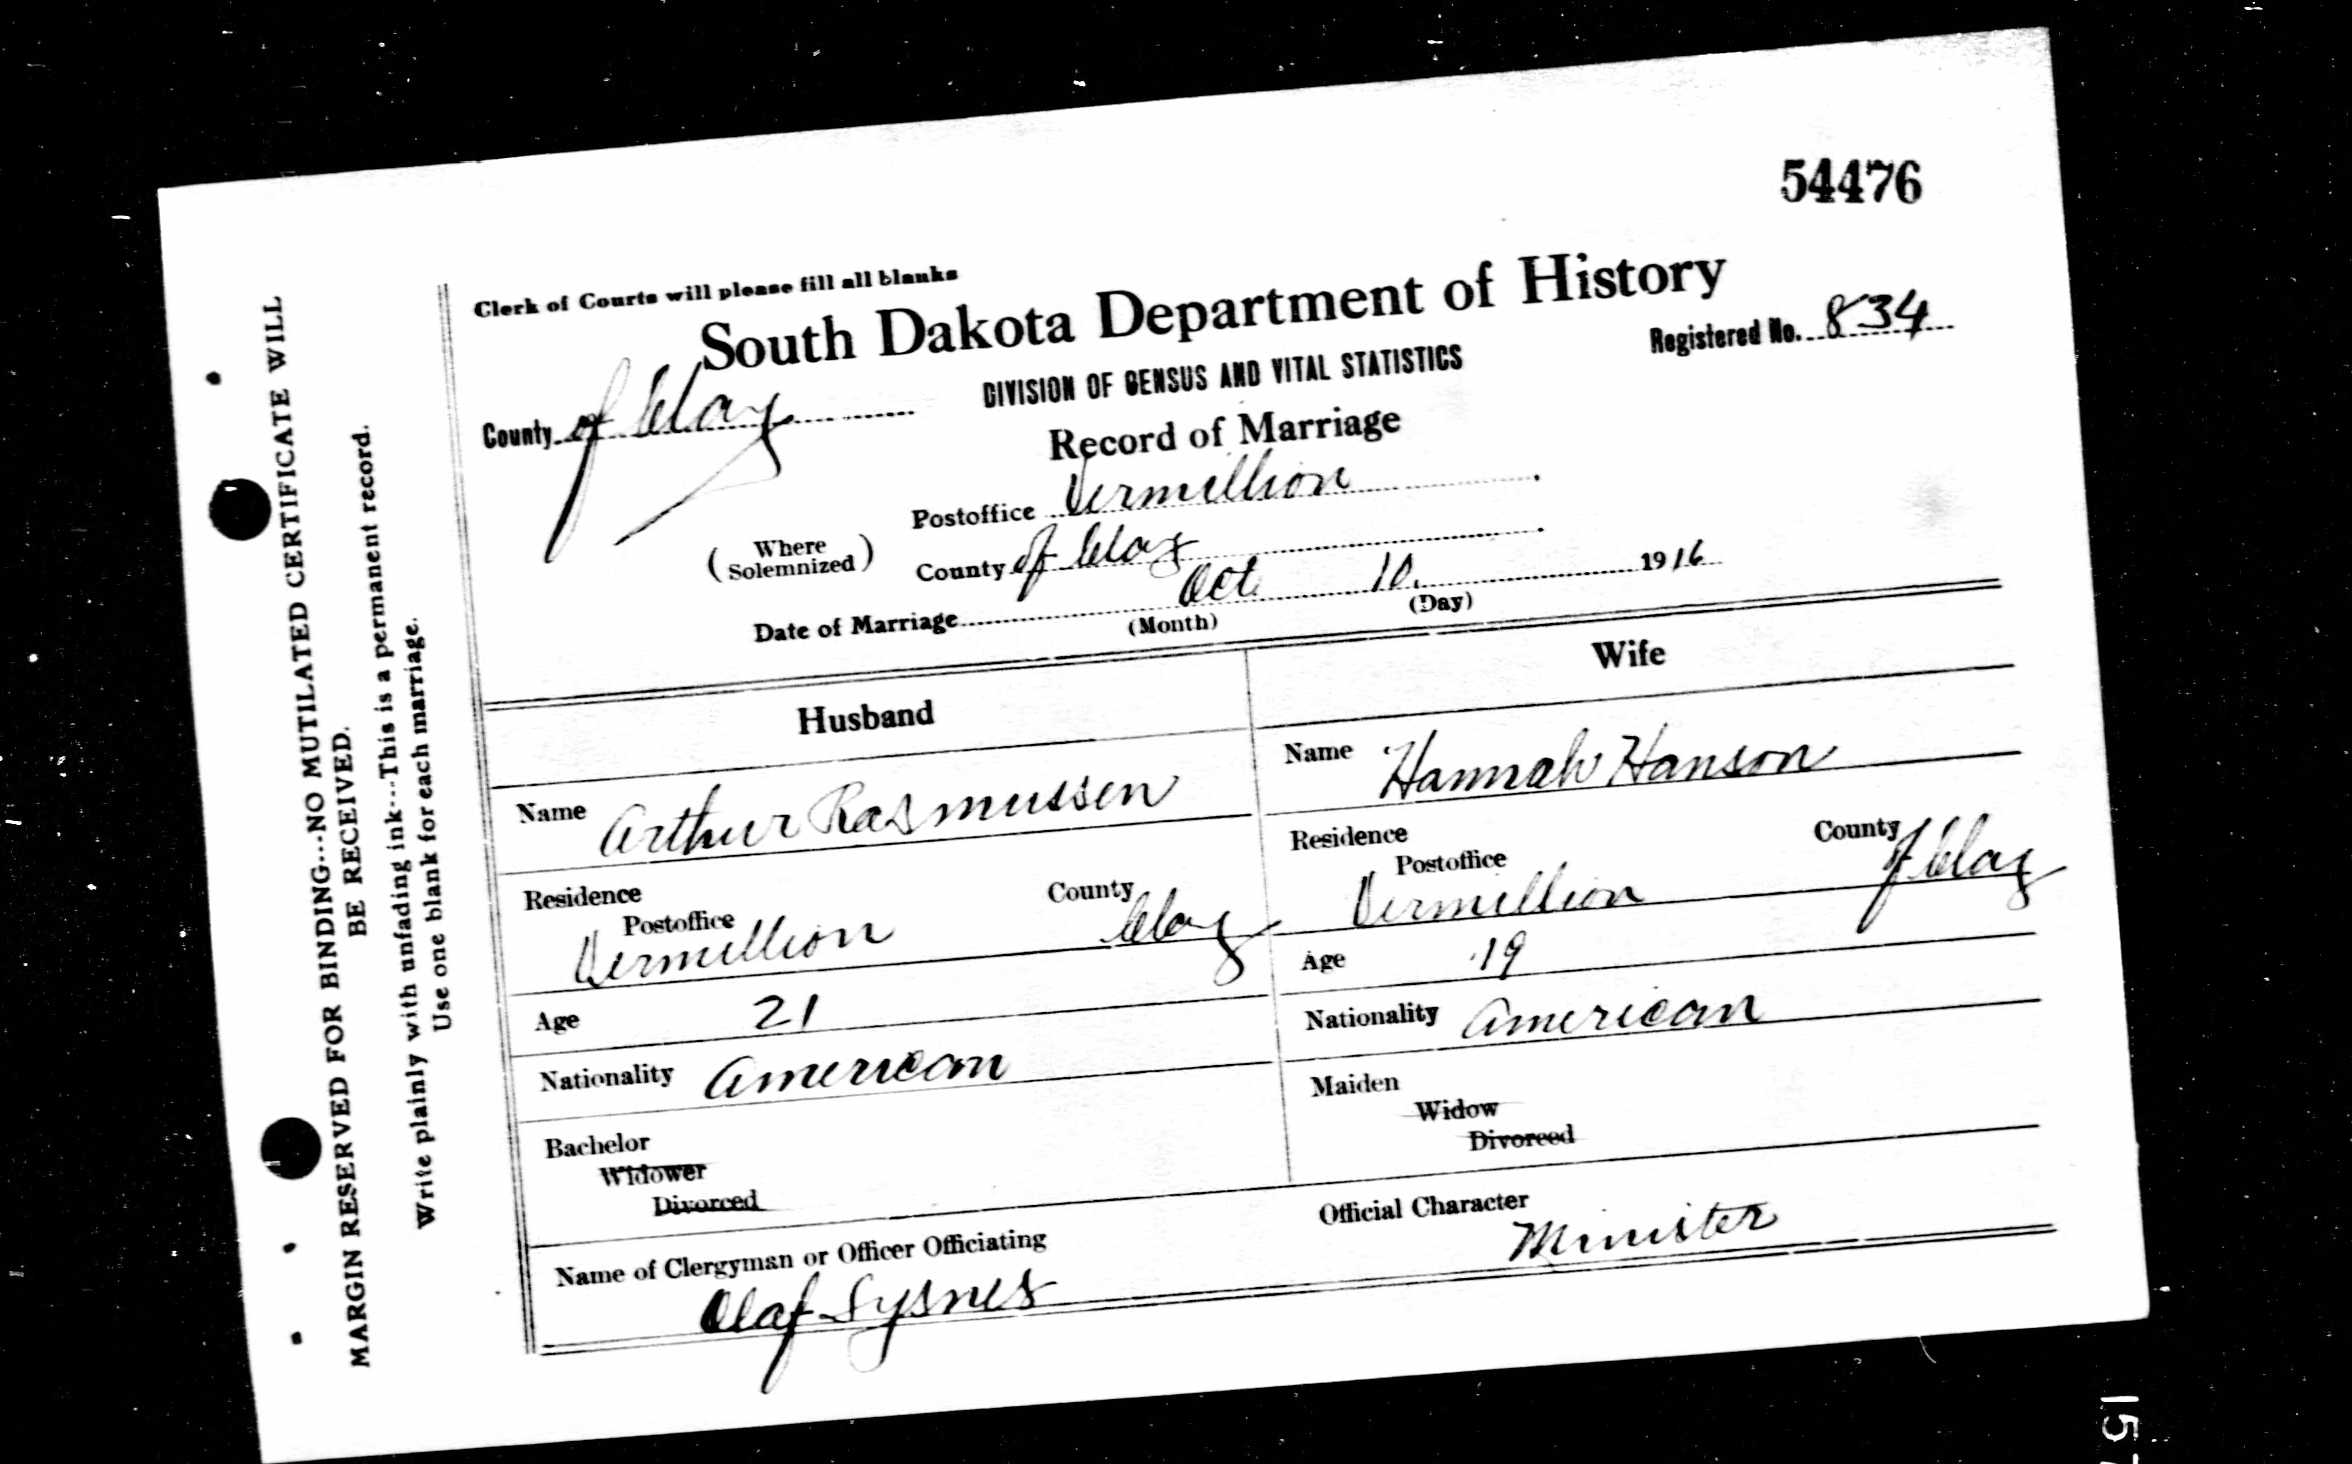 54476
Clerk of Courts will please fill all blanks
South Dakota Department of History
County of Clay
DIVISION OF CENSUS AND VITAL STATISTICS
Registered No. 834
Record of Marriage
(Where Solemnized)
Postoffice Vermillion
County of Clay
Date of Marriage Oct. 10. 1916
(Month) (Day)
Husband
Name Arthur Rasmussen
Residence
Postoffice County
Vermillion Clay
Age 21
Nationality American
Bachelor
Widower
Divorced
Wife
Name Hannah Hanson
Residence
Postoffice County of Clay
Vermillion
Age 19
Nationality American
Maiden
Widow
Divorced
Name of Clergyman or Officer Officiating
Olaf Sysnes
Official Character
Minister
MARGIN RESERVED FOR BINDING---NO MUTILATED CERTIFICATE WILL
BE RECEIVED.
Write plainly with unfading ink---This is a permanent record.
Use one blank for each marriage.